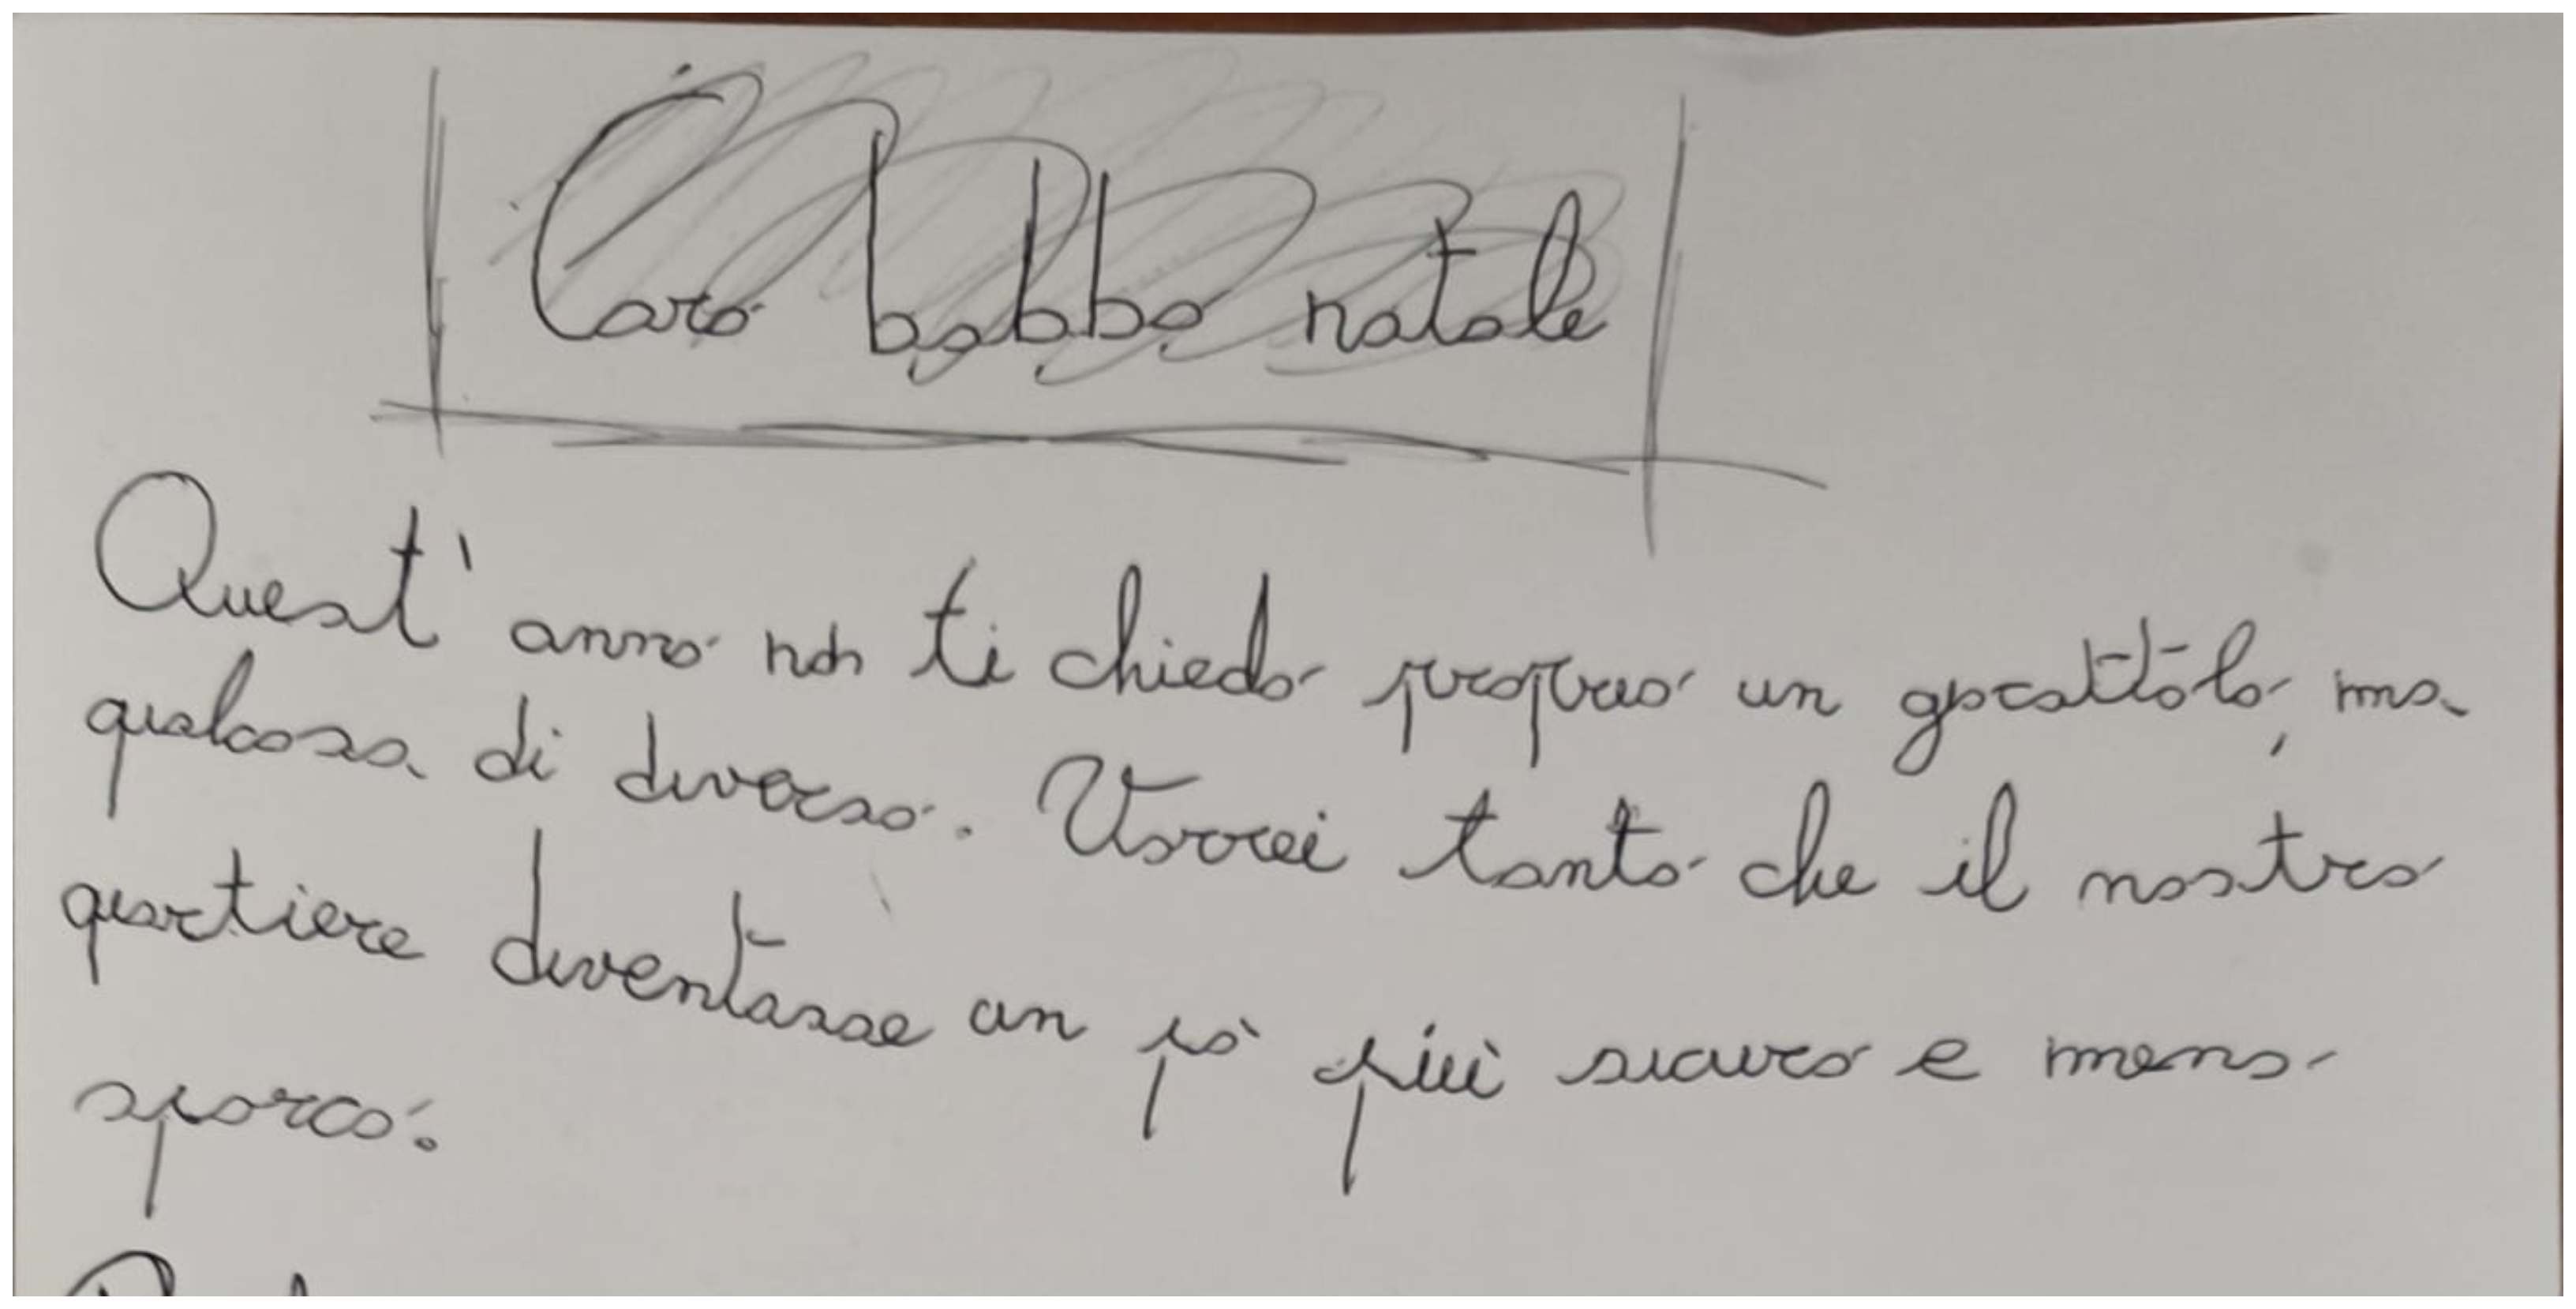 Caro babbo natale
Quest' anno non ti chiedo proprio un giocattolo, ma
qualcosa di diverso. Vorrei tanto che il nostro
quartiere diventasse un pò più sicuro e meno
sporco.